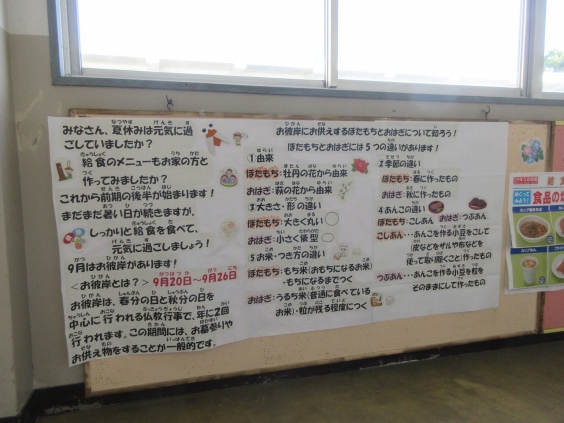 みなさん、夏休みは元気に過
ごしていましたか?
給食のメニューもお家の方と
作ってみましたか?
これから前期の後半が始まります!
まだまだ暑い日が続きますが、
しっかりと給食を食べて、
元気に過ごしましょう!
9月はお彼岸があります!
<お彼岸とは?>9月20日~9月26日
お彼岸は、春分の日と秋分の日を
中心に行われる仏教行事で、年に2回
行われます。この期間には、お墓参りや
お供え物をすることが一般的です。
お彼岸にお供えするぼたもちとおはぎについて知ろう!
ぼたもちとおはぎには5つの違いがあります!
1由来
ぼたもち:牡丹の花から由来
おはぎ:萩の花から由来
3大きさ・形の違い
ぼたもち:大きく丸い
おはぎ:小さく俵型
5お米・つき方の違い
ぼたもち:もち米(おもちになるお米)
・もちになるまでつく
おはぎ:うるち米(普通に食べている
お米)・粒が残る程度につく
2季節の違い
ぼたもち:春に作ったもの
おはぎ:秋に作ったもの
4あんこの違い
ぼたもち:こしあん おはぎ:つぶあん
こしあん…あんを作る小豆をこして
(皮などをザルや布などを
使って取り除くこと)作ったもの
つぶあん…あんを作る小豆を粒を
そのままにして作ったもの